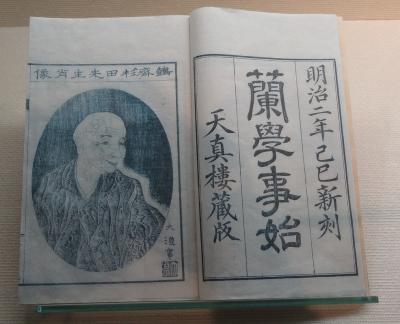 明治二年己巳新刻
蘭學事始
天真樓蔵版
鷧斎杉田先生肖像